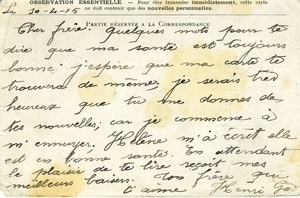 OBSERVATION ESSENTIELLE. — Pour être transmise immédiatement, cette carte
ne doit contenir que des nouvelles personnelles.
PARTIE RÉSERVÉE A LA CORRESPONDANCE
Le 10-4-15
Cher frère: Quelques mots pour te
dire que ma santé est toujours
bonne; j'espère que ma carte te
trouvera de même, je serais très
heureux que tu me donnes de
tes nouvelles; car je commence à
m'ennuyer. Hélène m'a écrit elle
est en bonne santé. En attendant
le plaisir de te lire reçoit mes
meilleurs baisers. Ton frère qui
t'aime Henri